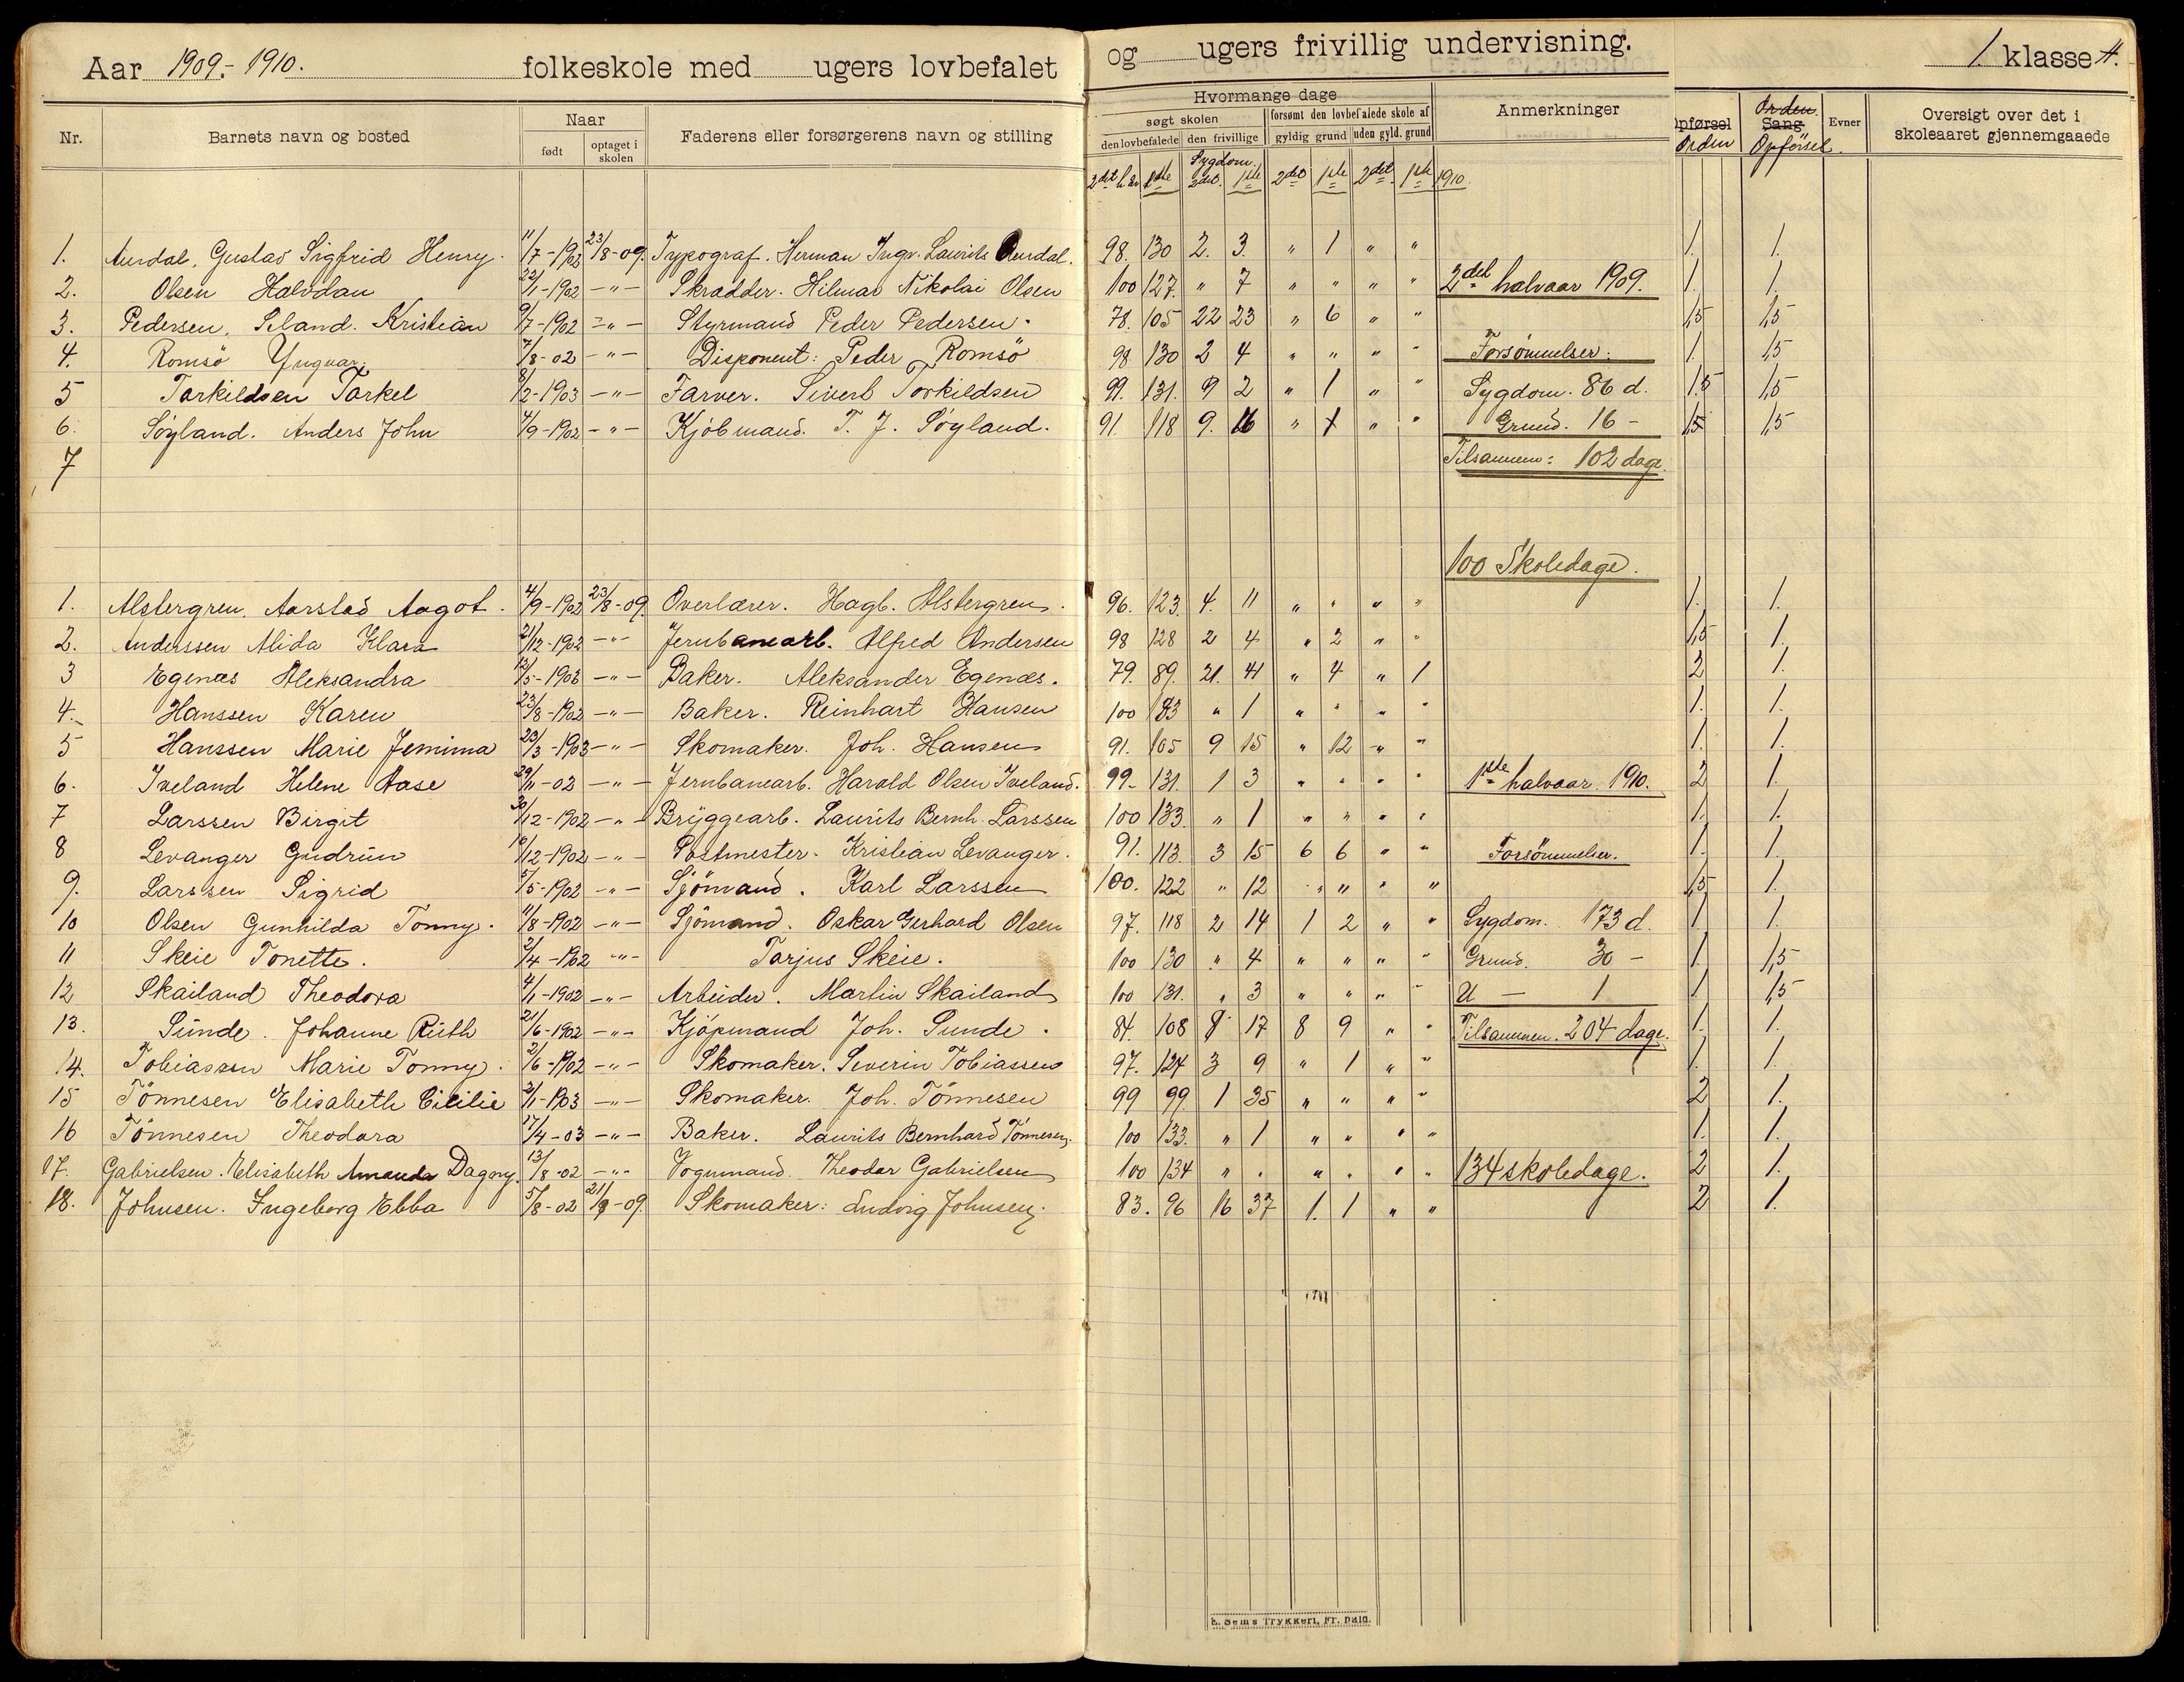 Aar 1909.-1910. folkeskole med ugers lovbefalet og ugers frivillig undervisning. 1. klasse A.
Nr. Barnets navn og bosted Naar Faderens eller forsørgerens navn og stilling Hvormange dage Anmerkninger Opførsel Orden Sang Evner Oversigt over det i
født optaget i skolen søgt skolen forsømt den lovbefalede skole af Orden Opførsel. skoleaaret gjennemgaaede
den lovbefalede den frivillige gyldig grund uden gyld. grund
Sygdom.
2det 1ste 2det 1ste 2det 1ste 1910.
1. Aurdal, Gustav Sigfrid Henry. 11/7-1902 23/8-09. Typograf. Herman Ingv. Laurits Aurdal. 98. 130 2. 3. " 1 " " 1. 1.
2. Olsen Halvdan 22/1-1902 -"- Skrædder. Hilmar Nikolai Olsen 100 127. " 7 " " " " 2det halvaar 1909. 1. 1.
3. Pedersen, Seland. Kristian 9/7-1902 -"- Styrmand Peder Pedersen. 78. 105 22 23 " 6 " " 1,5 1,5
4. Romsö Yngvar. 7/8-02 -"- Disponent: Peder Romsö 98. 130 2 4 " " " " Forsømmelser: 1. 1,5
5 Torkildsen Torkel 8/2-1903 -"- Farver. Sivert Torkildsen 99. 131. 9 2 " 1 " " Sygdom. 86 d. 1.5 1,5
6. Söyland. Anders John 4/9-1902 -"- Kjöbmand. T. J. Söyland. 91. 118 9. 16 " 1 " " Grund. 16 - 1,5 1,5
7 Tilsammen: 102 dage.
100 Skoledage.
1. Alstergren, Aarstad Aagot. 4/9-1902 23/8-09. Overlærer. Hagb. Alstergren. 96. 123. 4. 11 " " " " 1. 1.
2. Anderssen Alida Klara 21/12-1902 -"- Jernbanearb. Alfred Andersen 98 128 2 4 " 2 " " 1,5 1.
3 Egenæs Aleksandra 12/5-1902 -"- Baker. Aleksander Egenæs. 79. 89. 21. 41 " 4 " 1 2 1.
4. Hanssen Karen 23/8-1902 -"- Baker. Reinhart Hansen 100 133 " 1 " " " " 1. 1.
5 Hanssen Marie Jemima 23/3-1903 -"- Skomaker. Joh. Hansen 91. 105 9 15 " 12 " " 1. 1.
6. Iveland Helene Aase 29/11-02 -"- Jernbanearb. Harald Olsen Iveland. 99- 131. 1 3 " " " " 1ste halvaar 1910. 2 1.
7 Larssen Birgit 30/12-1902 -"- Bryggearb. Laurits Bernh. Larssen 100 133. " 1 " " " " 1. 1.
8 Levanger Gudrun 16/12-1902 -"- Postmester. Kristian Levanger. 91. 113. 3 15 6 6 " " Forsømmelser. 1. 1.
9. Larssen Sigrid 5/5-1902 -"- Sjömand. Karl Larssen 100. 122 " 12 " " " " 1,5 1.
10 Olsen Gunhilda Tonny. 11/8-1902 -"- Sjömand. Oskar Gerhard Olsen 97. 118 2 14 1 2 " " Sygdom. 173 d. 1. 1.
11 Skeie Tonette. 2/4-1902 -"- Tarjus Skeie. 100 130 " 4 " " " " Grund. 30 - 1. 1,5
12 Skailand Theodora 4/1-1902 -"- Arbeider. Martin Skailand 100 131. " 3 " " " " U - 1 1. 1,5
13. Sunde. Johanne Ruth 21/6-1902 -"- Kjöpmand Joh. Sunde. 84. 108 8 17 8 9 " " Tilsammen. 204 dage. 1. 1.
14. Tobiassen Marie Tonny. 2/6-1902 -"- Skomaker. Severin Tobiassen 97. 124 3 9 " 1 " " 1. 1.
15 Tönnesen Elisabeth Cicilie 3/1-1903 -"- Skomaker. Joh. Tönnesen 99 99. 1 35 " " " " 2 1.
16 Tönnesen Theodora 17/4-03 -"- Baker. Laurits Bernhard Tönnesen. 100 133. " 1 " " " " 1. 1.
17. Gabrielsen. Elisabeth Amanda Dagny. 13/8-02 -"- Vognmand. Theodor Gabrielsen 100 134 " " " " " " 134 skoledage. 2 1.
18. Johnsen. Ingeborg Ebba 5/8-02 21/9-09. Skomaker: Ludvig Johnsen. 83. 96 16 37 1. 1 " " 2 1.